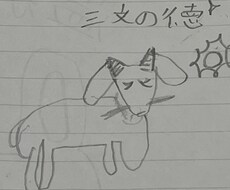 三文の徳